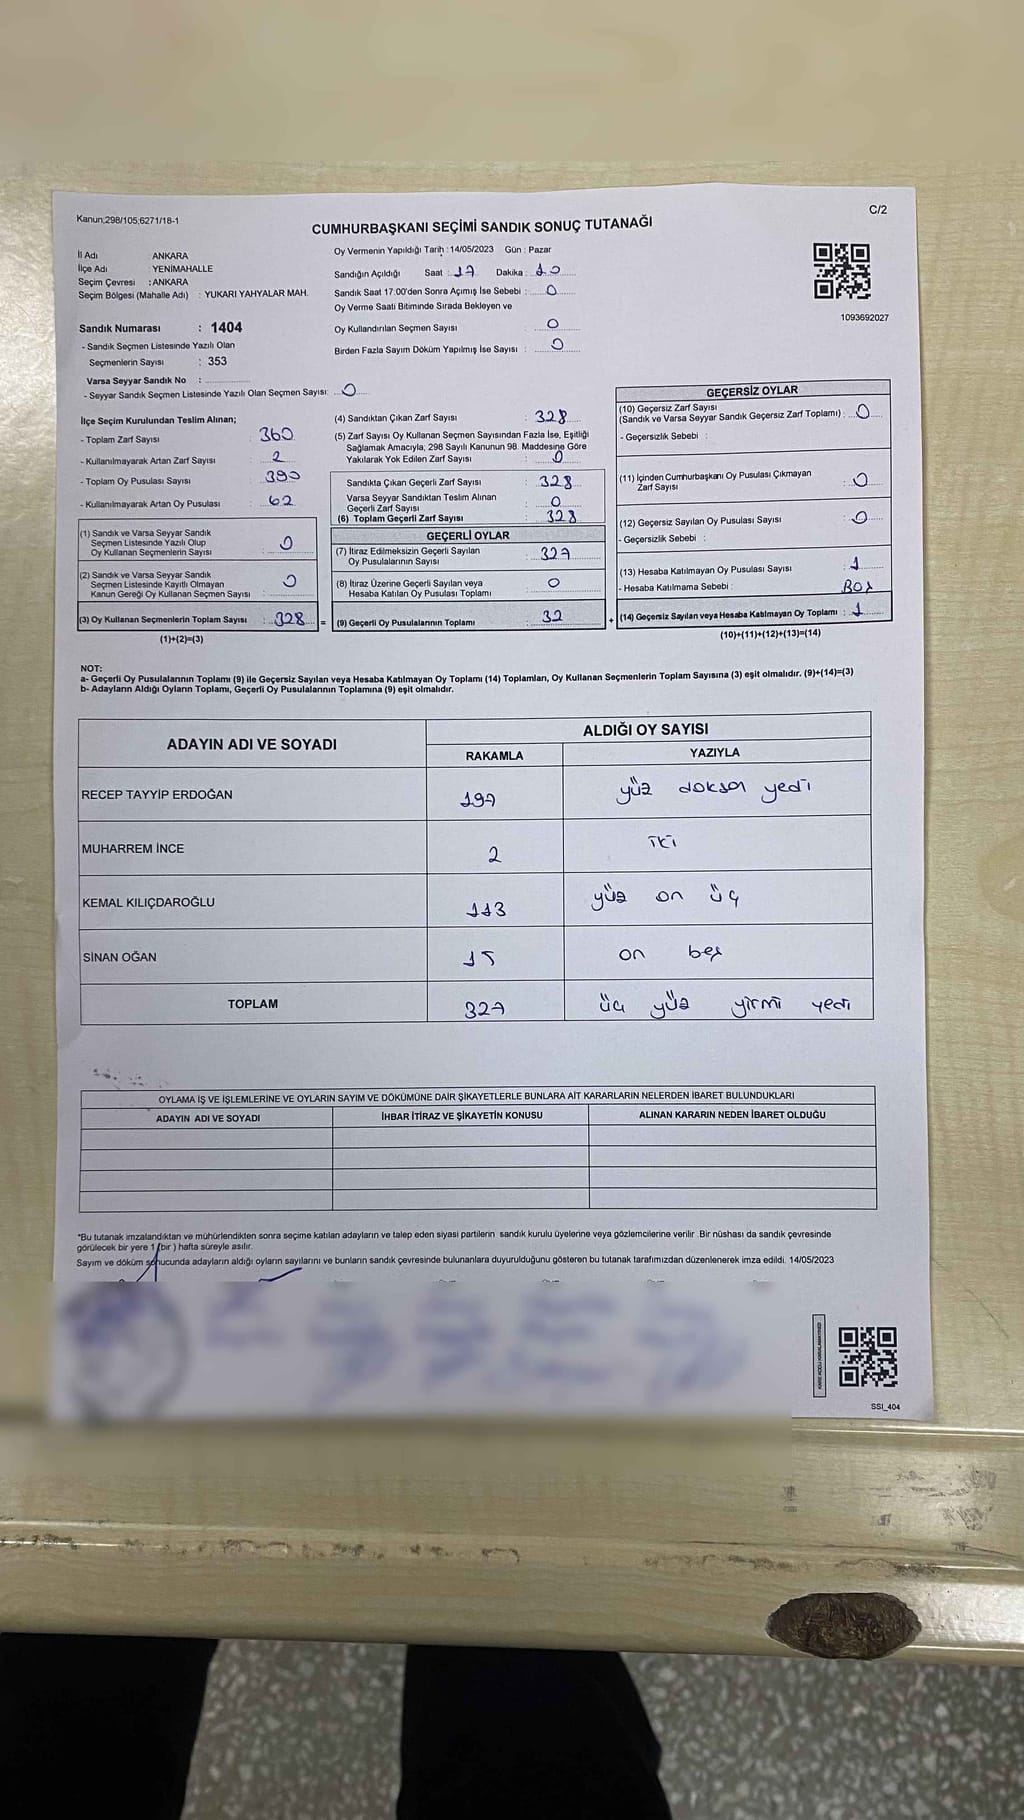 Kanun;298/105;6271/18-1
C/2
CUMHURBAŞKANI SEÇİMİ SANDIK SONUÇ TUTANAĞI
İl Adı : ANKARA
İlçe Adı : YENİMAHALLE
Seçim Çevresi : ANKARA
Seçim Bölgesi (Mahalle Adı) : YUKARI YAHYALAR MAH.
Sandık Numarası : 1404
- Sandık Seçmen Listesinde Yazılı Olan
Seçmenlerin Sayısı : 353
Varsa Seyyar Sandık No :
- Seyyar Sandık Seçmen Listesinde Yazılı Olan Seçmen Sayısı: 0
Oy Vermenin Yapıldığı Tarih : 14/05/2023 Gün : Pazar
Sandığın Açıldığı Saat : 17 Dakika : 10
Sandık Saat 17:00'den Sonra Açımış İse Sebebi : 0
Oy Verme Saati Bitiminde Sırada Bekleyen ve
Oy Kullandırılan Seçmen Sayısı : 0
Birden Fazla Sayım Döküm Yapılmış İse Sayısı : 0
1093692027
İlçe Seçim Kurulundan Teslim Alınan;
- Toplam Zarf Sayısı : 360
- Kullanılmayarak Artan Zarf Sayısı : 2
- Toplam Oy Pusulası Sayısı : 390
- Kullanılmayarak Artan Oy Pusulası : 62
(1) Sandık ve Varsa Seyyar Sandık
Seçmen Listesinde Yazılı Olup
Oy Kullanan Seçmenlerin Sayısı : 0
(2) Sandık ve Varsa Seyyar Sandık
Seçmen Listesinde Kayıtlı Olmayan
Kanun Gereği Oy Kullanan Seçmen Sayısı : 0
(3) Oy Kullanan Seçmenlerin Toplam Sayısı : 328 =
(1)+(2)=(3)
(4) Sandıktan Çıkan Zarf Sayısı : 328
(5) Zarf Sayısı Oy Kullanan Seçmen Sayısından Fazla İse, Eşitliği
Sağlamak Amacıyla, 298 Sayılı Kanunun 98. Maddesine Göre
Yakılarak Yok Edilen Zarf Sayısı : 0
Sandıkta Çıkan Geçerli Zarf Sayısı : 328
Varsa Seyyar Sandıktan Teslim Alınan
Geçerli Zarf Sayısı : 0
(6) Toplam Geçerli Zarf Sayısı : 328
GEÇERLİ OYLAR
(7) İtiraz Edilmeksizin Geçerli Sayılan
Oy Pusulalarının Sayısı : 327
(8) İtiraz Üzerine Geçerli Sayılan veya
Hesaba Katılan Oy Pusulası Toplamı : 0
(9) Geçerli Oy Pusulalarının Toplamı : 32 +
GEÇERSİZ OYLAR
(10) Geçersiz Zarf Sayısı
(Sandık ve Varsa Seyyar Sandık Geçersiz Zarf Toplamı) : 0
- Geçersizlik Sebebi :
(11) İçinden Cumhurbaşkanı Oy Pusulası Çıkmayan
Zarf Sayısı : 0
(12) Geçersiz Sayılan Oy Pusulası Sayısı : 0
- Geçersizlik Sebebi :
(13) Hesaba Katılmayan Oy Pusulası Sayısı : 1
- Hesaba Katılmama Sebebi : Boş
(14) Geçersiz Sayılan veya Hesaba Katılmayan Oy Toplamı : 1
(10)+(11)+(12)+(13)=(14)
NOT:
a- Geçerli Oy Pusulalarının Toplamı (9) ile Geçersiz Sayılan veya Hesaba Katılmayan Oy Toplamı (14) Toplamları, Oy Kullanan Seçmenlerin Toplam Sayısına (3) eşit olmalıdır. (9)+(14)=(3)
b- Adayların Aldığı Oyların Toplamı, Geçerli Oy Pusulalarının Toplamına (9) eşit olmalıdır.
ADAYIN ADI VE SOYADI
ALDIĞI OY SAYISI
RAKAMLA YAZIYLA
RECEP TAYYİP ERDOĞAN 197 yüz doksan yedi
MUHARREM İNCE 2 iki
KEMAL KILIÇDAROĞLU 113 yüz on üç
SİNAN OĞAN 15 on beş
TOPLAM 327 üç yüz yirmi yedi
OYLAMA İŞ VE İŞLEMLERİNE VE OYLARIN SAYIM VE DÖKÜMÜNE DAİR ŞİKAYETLERLE BUNLARA AİT KARARLARIN NELERDEN İBARET BULUNDUKLARI
ADAYIN ADI VE SOYADI İHBAR İTİRAZ VE ŞİKAYETİN KONUSU ALINAN KARARIN NEDEN İBARET OLDUĞU
*Bu tutanak imzalandıktan ve mühürlendikten sonra seçime katılan adayların ve talep eden siyasi partilerin sandık kurulu üyelerine veya gözlemcilerine verilir. Bir nüshası da sandık çevresinde
görülecek bir yere 1 (bir ) hafta süreyle asılır.
Sayım ve döküm sonucunda adayların aldığı oyların sayılarını ve bunların sandık çevresinde bulunanlara duyurulduğunu gösteren bu tutanak tarafımızdan düzenlenerek imza edildi. 14/05/2023
SSI_404